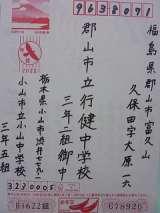 9638071
福島県郡山市富久山
久保田字大原一六
郡山市立行健中学校
三年二組御中
栃木県小山市
小山市立小山中学校
三年五組
3230005
B4622組